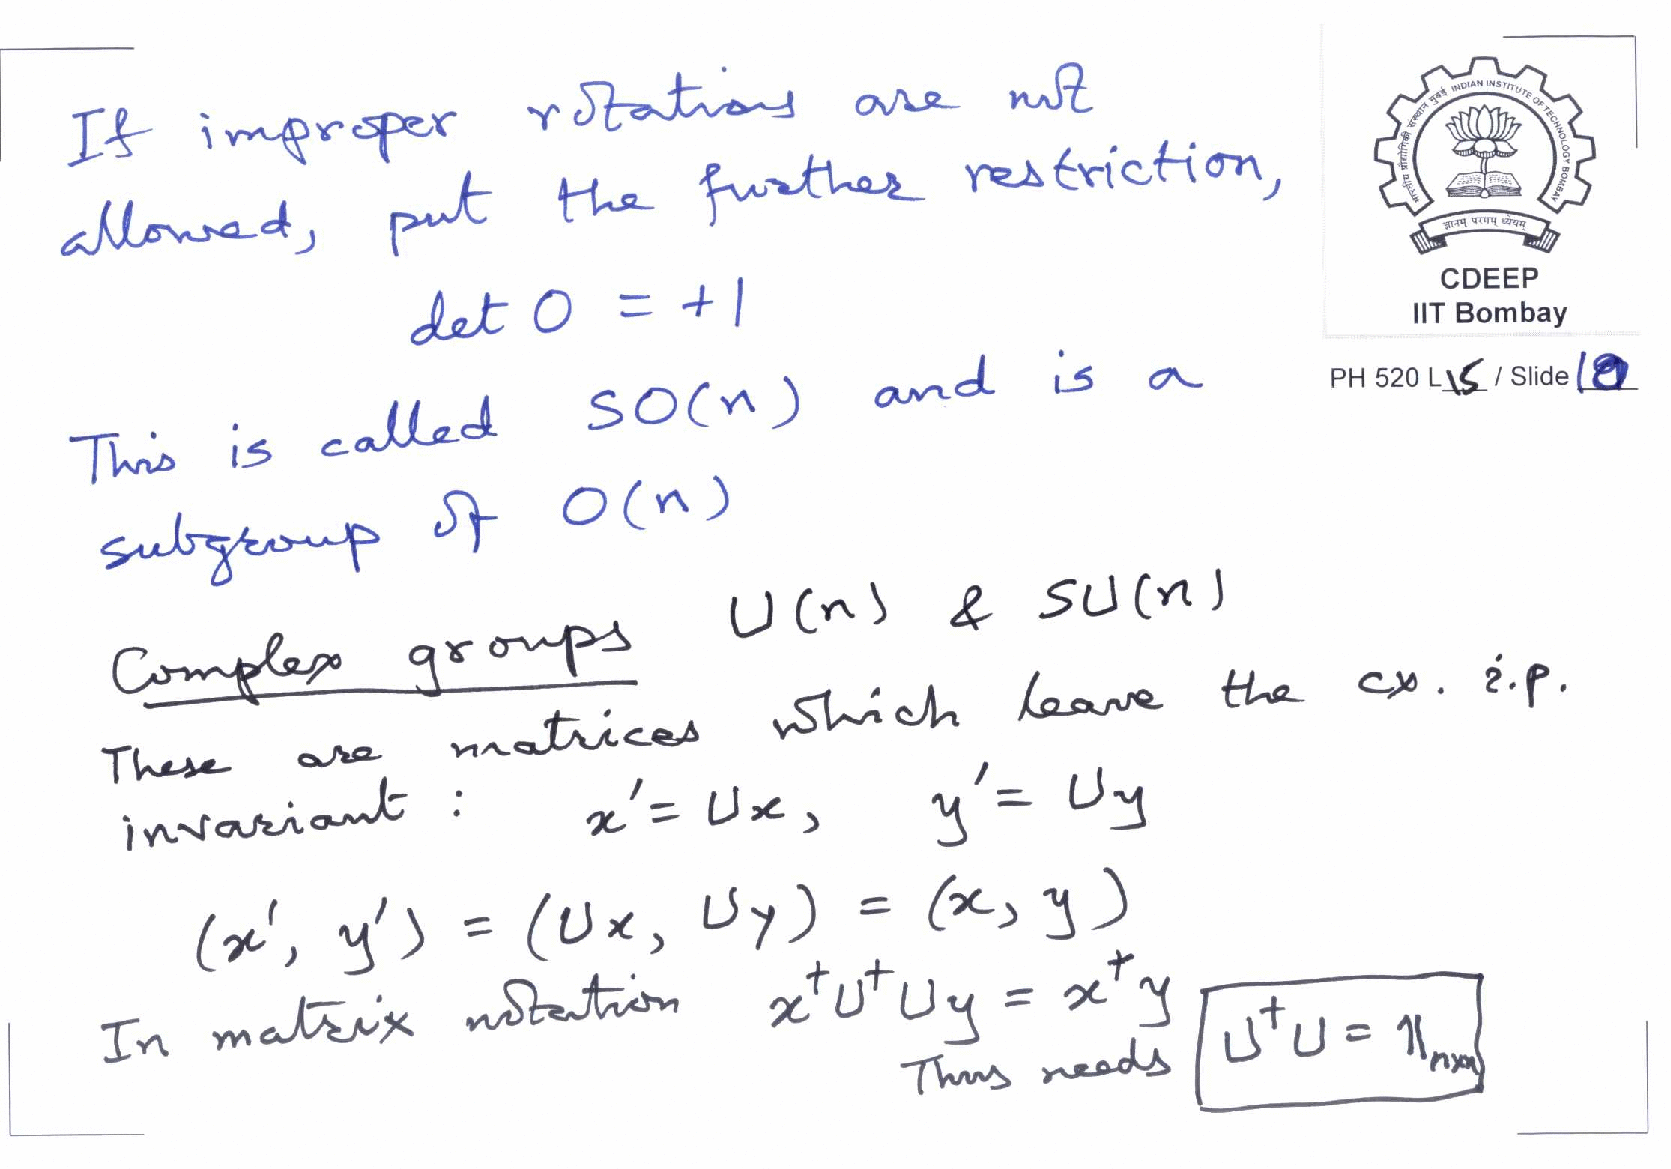 If improper rotations are not
allowed, put the further restriction,
det O = +1
This is called SO(n) and is a
subgroup of O(n)
Complex groups U(n) & SU(n)
These are matrices which leave the cx. i.p.
invariant : x' = Ux, y' = Uy
(x', y') = (Ux, Uy) = (x, y)
In matrix notation x†U†Uy = x†y
Thus needs U†U = 𝟙n×n
INDIAN INSTITUTE OF TECHNOLOGY BOMBAY
भारतीय प्रौद्योगिकी संस्थान मुंबई
ज्ञानम् परमम् ध्येयम्
CDEEP
IIT Bombay
PH 520 L15 / Slide